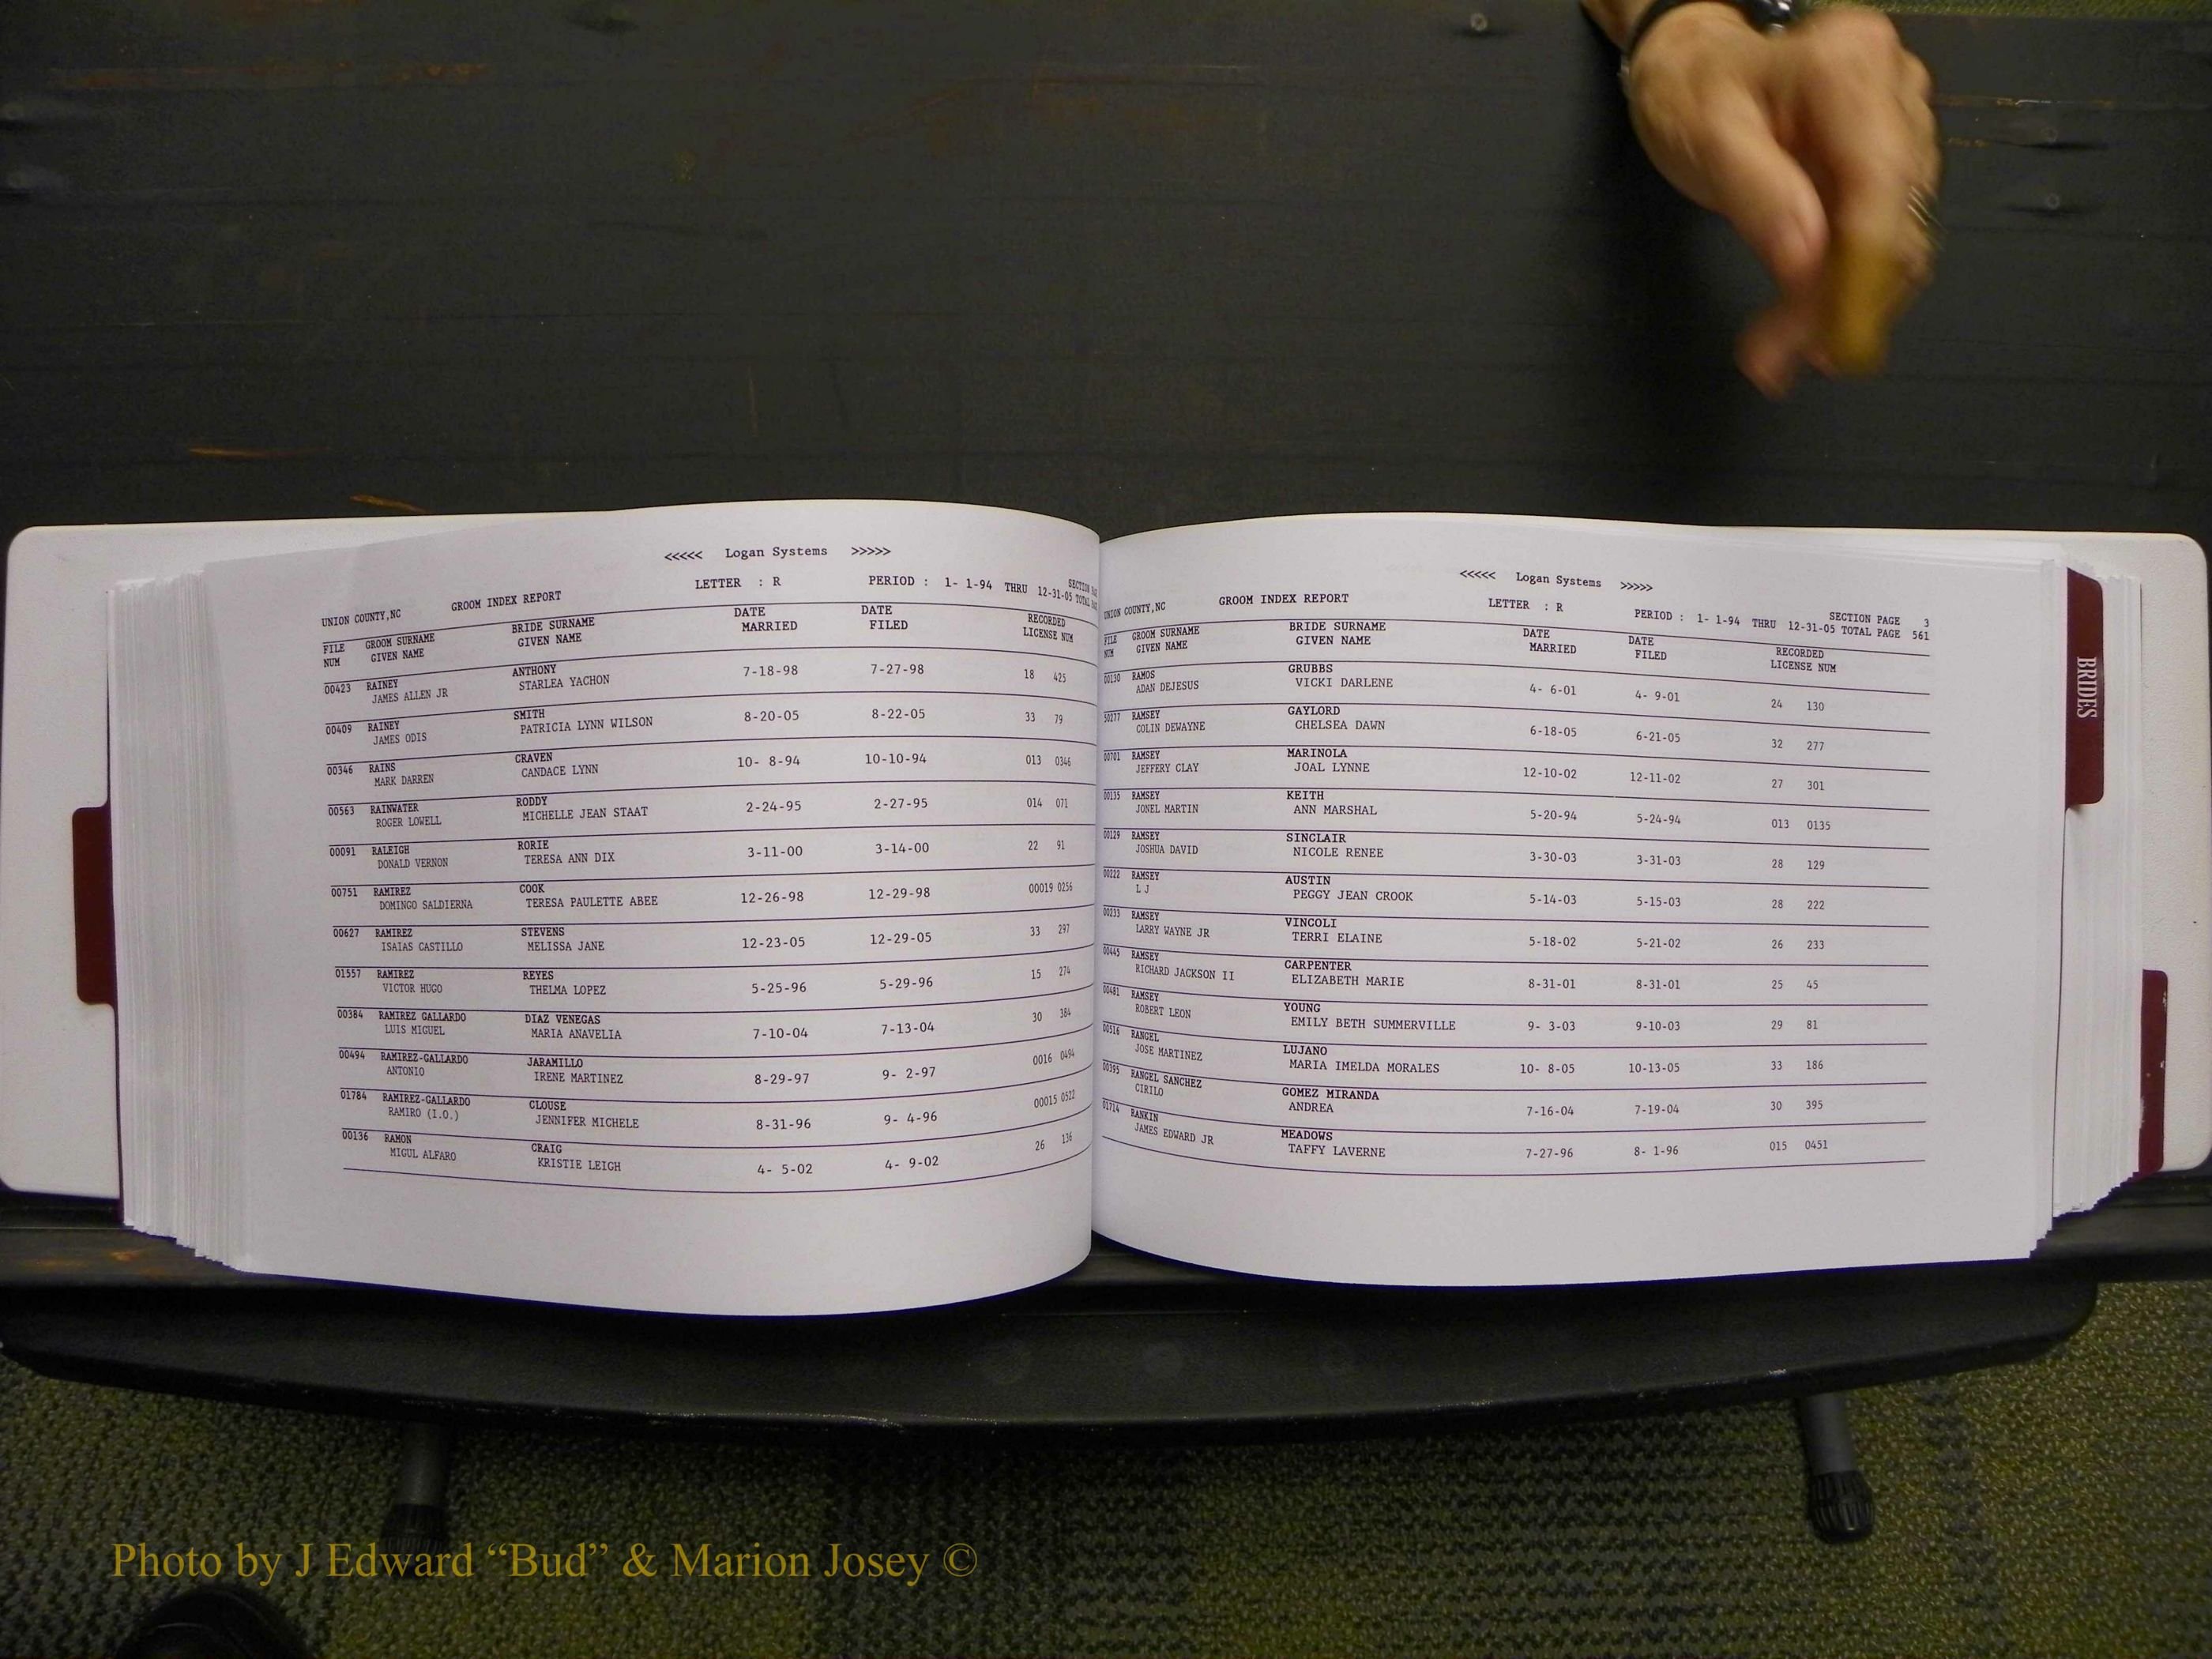 <<<<< Logan Systems >>>>>
UNION COUNTY,NC GROOM INDEX REPORT LETTER : R PERIOD : 1- 1-94 THRU 12-31-05 SECTION TOTAL
FILE NUM GROOM SURNAME GIVEN NAME BRIDE SURNAME GIVEN NAME DATE MARRIED DATE FILED RECORDED LICENSE NUM
00423 RAINEY ANTHONY 7-18-98 7-27-98 18 425
JAMES ALLEN JR STARLEA YACHON
00409 RAINEY SMITH 8-20-05 8-22-05 33 79
JAMES ODIS PATRICIA LYNN WILSON
00346 RAINS CRAVEN 10- 8-94 10-10-94 013 0346
MARK DARREN CANDACE LYNN
00563 RAINWATER RODDY 2-24-95 2-27-95 014 071
ROGER LOWELL MICHELLE JEAN STAAT
00091 RALEIGH RORIE 3-11-00 3-14-00 22 91
DONALD VERNON TERESA ANN DIX
00751 RAMIREZ COOK 12-26-98 12-29-98 00019 0256
DOMINGO SALDIERNA TERESA PAULETTE ABEE
00627 RAMIREZ STEVENS 12-23-05 12-29-05 33 297
ISAIAS CASTILLO MELISSA JANE
01557 RAMIREZ REYES 5-25-96 5-29-96 15 274
VICTOR HUGO THELMA LOPEZ
00384 RAMIREZ GALLARDO DIAZ VENEGAS 7-10-04 7-13-04 30 384
LUIS MIGUEL MARIA ANAVELIA
00494 RAMIREZ-GALLARDO JARAMILLO 8-29-97 9- 2-97 0016 0494
ANTONIO IRENE MARTINEZ
01784 RAMIREZ-GALLARDO CLOUSE 8-31-96 9- 4-96 00015 0522
RAMIRO (I.O.) JENNIFER MICHELE
00136 RAMON CRAIG 4- 5-02 4- 9-02 26 136
MIGUL ALFARO KRISTIE LEIGH
<<<<< Logan Systems >>>>>
UNION COUNTY,NC GROOM INDEX REPORT LETTER : R PERIOD : 1- 1-94 THRU 12-31-05 SECTION PAGE 3
TOTAL PAGE 561
FILE NUM GROOM SURNAME GIVEN NAME BRIDE SURNAME GIVEN NAME DATE MARRIED DATE FILED RECORDED LICENSE NUM
00130 RAMOS GRUBBS 4- 6-01 4- 9-01 24 130
ADAN DEJESUS VICKI DARLENE
50277 RAMSEY GAYLORD 6-18-05 6-21-05 32 277
COLIN DEWAYNE CHELSEA DAWN
00701 RAMSEY MARINOLA 12-10-02 12-11-02 27 301
JEFFERY CLAY JOAL LYNNE
00135 RAMSEY KEITH 5-20-94 5-24-94 013 0135
JONEL MARTIN ANN MARSHAL
00129 RAMSEY SINCLAIR 3-30-03 3-31-03 28 129
JOSHUA DAVID NICOLE RENEE
00222 RAMSEY AUSTIN 5-14-03 5-15-03 28 222
L J PEGGY JEAN CROOK
00233 RAMSEY VINCOLI 5-18-02 5-21-02 26 233
LARRY WAYNE JR TERRI ELAINE
00445 RAMSEY CARPENTER 8-31-01 8-31-01 25 45
RICHARD JACKSON II ELIZABETH MARIE
00481 RAMSEY YOUNG 9- 3-03 9-10-03 29 81
ROBERT LEON EMILY BETH SUMMERVILLE
00516 RANGEL LUJANO 10- 8-05 10-13-05 33 186
JOSE MARTINEZ MARIA IMELDA MORALES
00395 RANGEL SANCHEZ GOMEZ MIRANDA 7-16-04 7-19-04 30 395
CIRILO ANDREA
01714 RANKIN MEADOWS 7-27-96 8- 1-96 015 0451
JAMES EDWARD JR TAFFY LAVERNE
BRIDES
Photo by J Edward “Bud” & Marion Josey ©